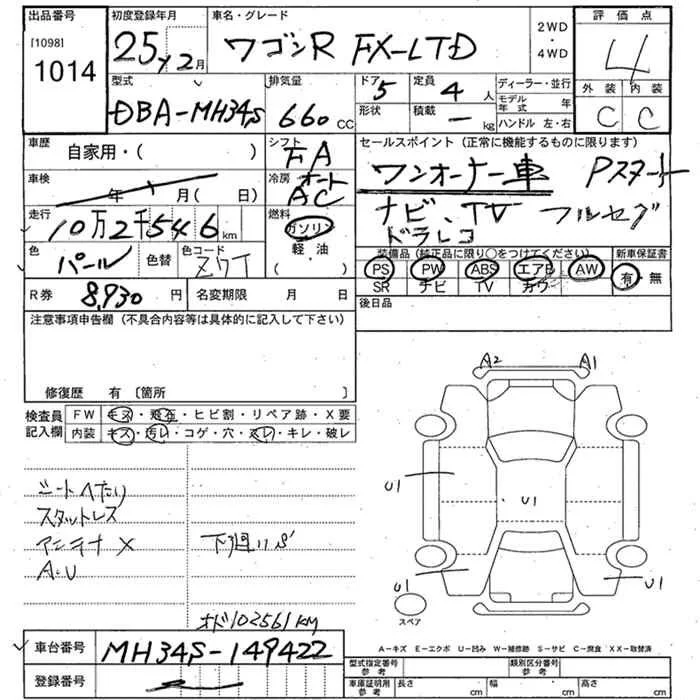 出品番号 初度登録年月 車名・グレード 2WD・4WD 評価点
[1098]
1014 25年12月 ワゴンR FX-LTD 4
型式 排気量 ドア 定員 ディーラー・並行 外装 内装
DBA-MH34S 660 CC 5 4人 モデル年式 年 C C
形状 積載 - kg ハンドル 左・右
車歴 自家用・( ) シフト FA セールスポイント (正常に機能するものに限ります)
車検 年 月( 日) 冷房 オート AC ワンオーナー車 Pスタート
走行 10万2千546km 燃料 ガソリン 軽油 ( ・ ) ナビ、TV フルセグ
ドラレコ
色 パール 色替 色コード Z7T 装備品(純正品に限り○をつけてください) 新車保証書
PS PW ABS エアB AW 有・無
SR ナビ TV カワ
R券 8,930円 名変期限 月 日 後日品
注意事項申告欄 (不具合内容等は具体的に記入して下さい)
修復歴 有 〔箇所 〕
検査員記入欄 FW キズ・飛石・ヒビ割・リペア跡・X要
内装 キズ・汚れ・コゲ・穴・スレ・キレ・破レ
シートへたり
スタットレス
アンテナ X 下廻りサビ
A:U
オド102561KM
A2 A1
U1 U1
U1 U1
スペア
A-キズ E-エクボ U-凹み W-補修跡 S-サビ C-腐食 XX-取替済
車台番号 MH34S-149422
登録番号
型式指定番号 参考 類別区分番号 参考
車庫証明用 参考 長さ cm 幅 cm 高さ cm